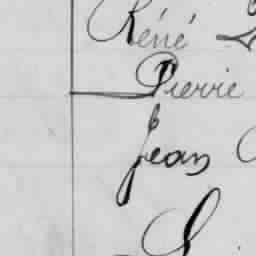 Réné
Pierre
Jean